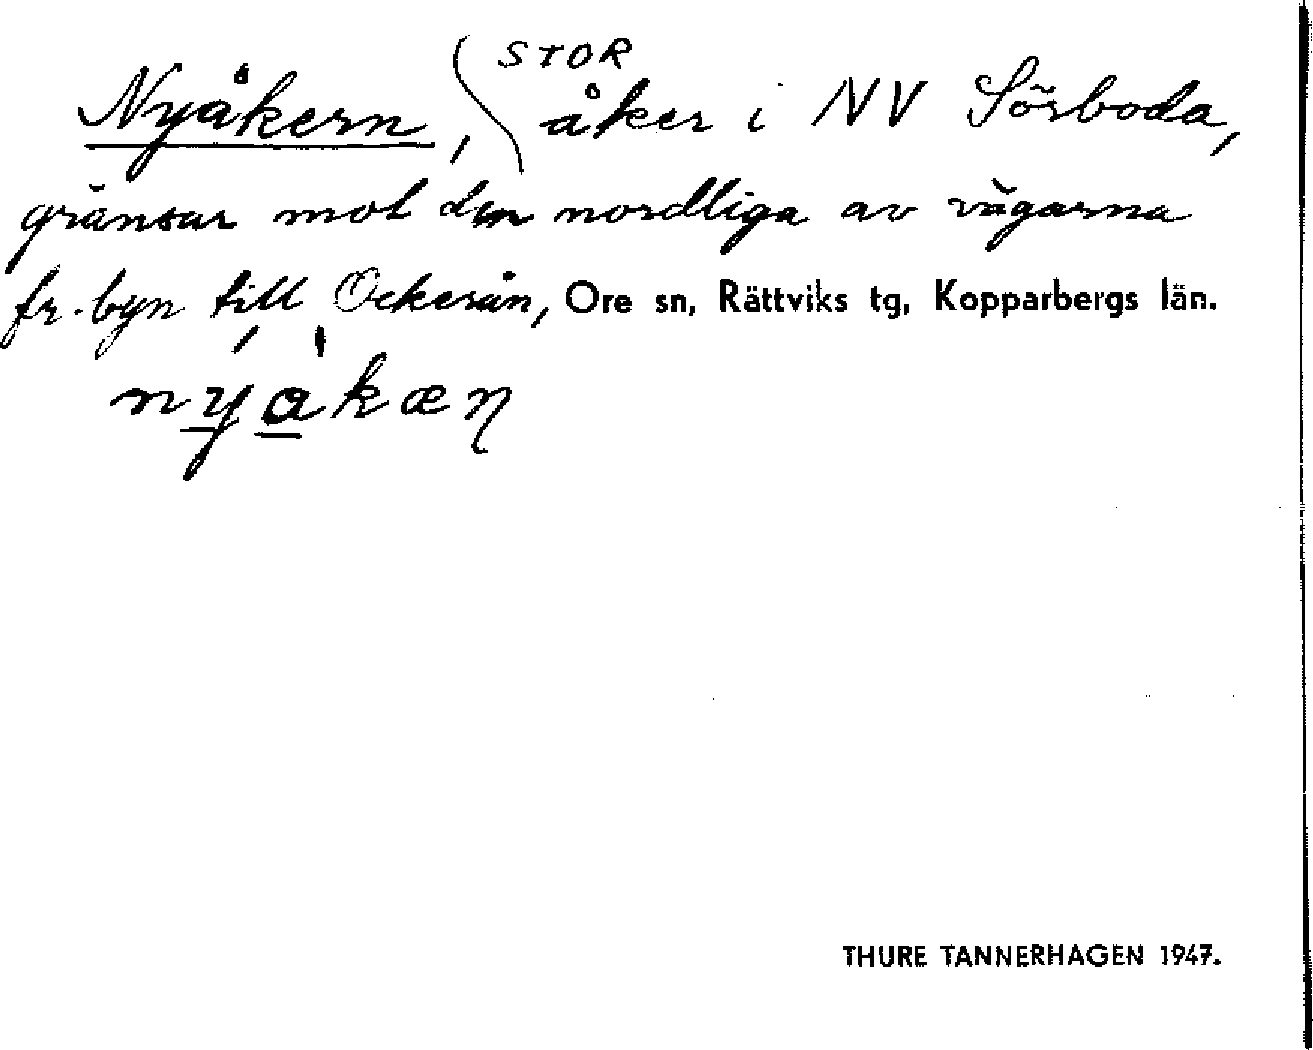 Nyåkern, STOR åker i NV Sörboda,
gränsar mot den nordliga av vägarna
fr. byn till Ockerån, Ore sn, Rättviks tg, Kopparbergs län.
nyåkæn
THURE TANNERHAGEN 1947.